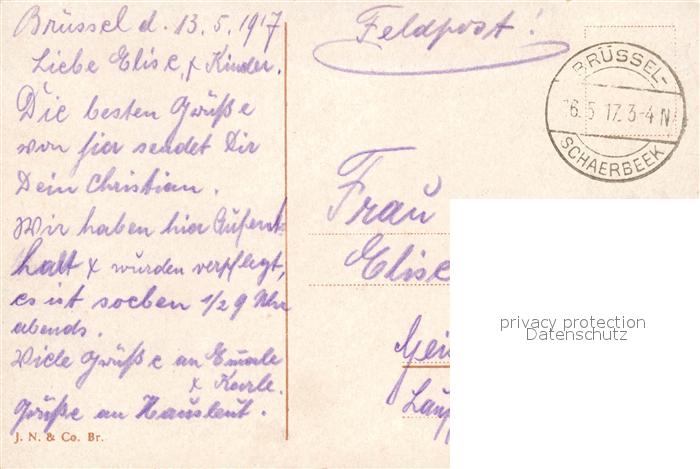 Brüssel d. 13.5.1917
Liebe Elise, x Kinder.
Die besten Grüße
von hier sendet Dir
Dein Christian.
Wir haben hier Aufent-
halt x wurden verpflegt,
es ist soeben 1/2 9 Uhr
abends.
Viele Grüße an Emerle
x Karle.
Grüße an Hausleut.
J. N. & Co. Br.
Feldpost!
BRÜSSEL-
16.5 17.3-4N
SCHAERBEEK
Frau
Elise
privacy protection
Datenschutz